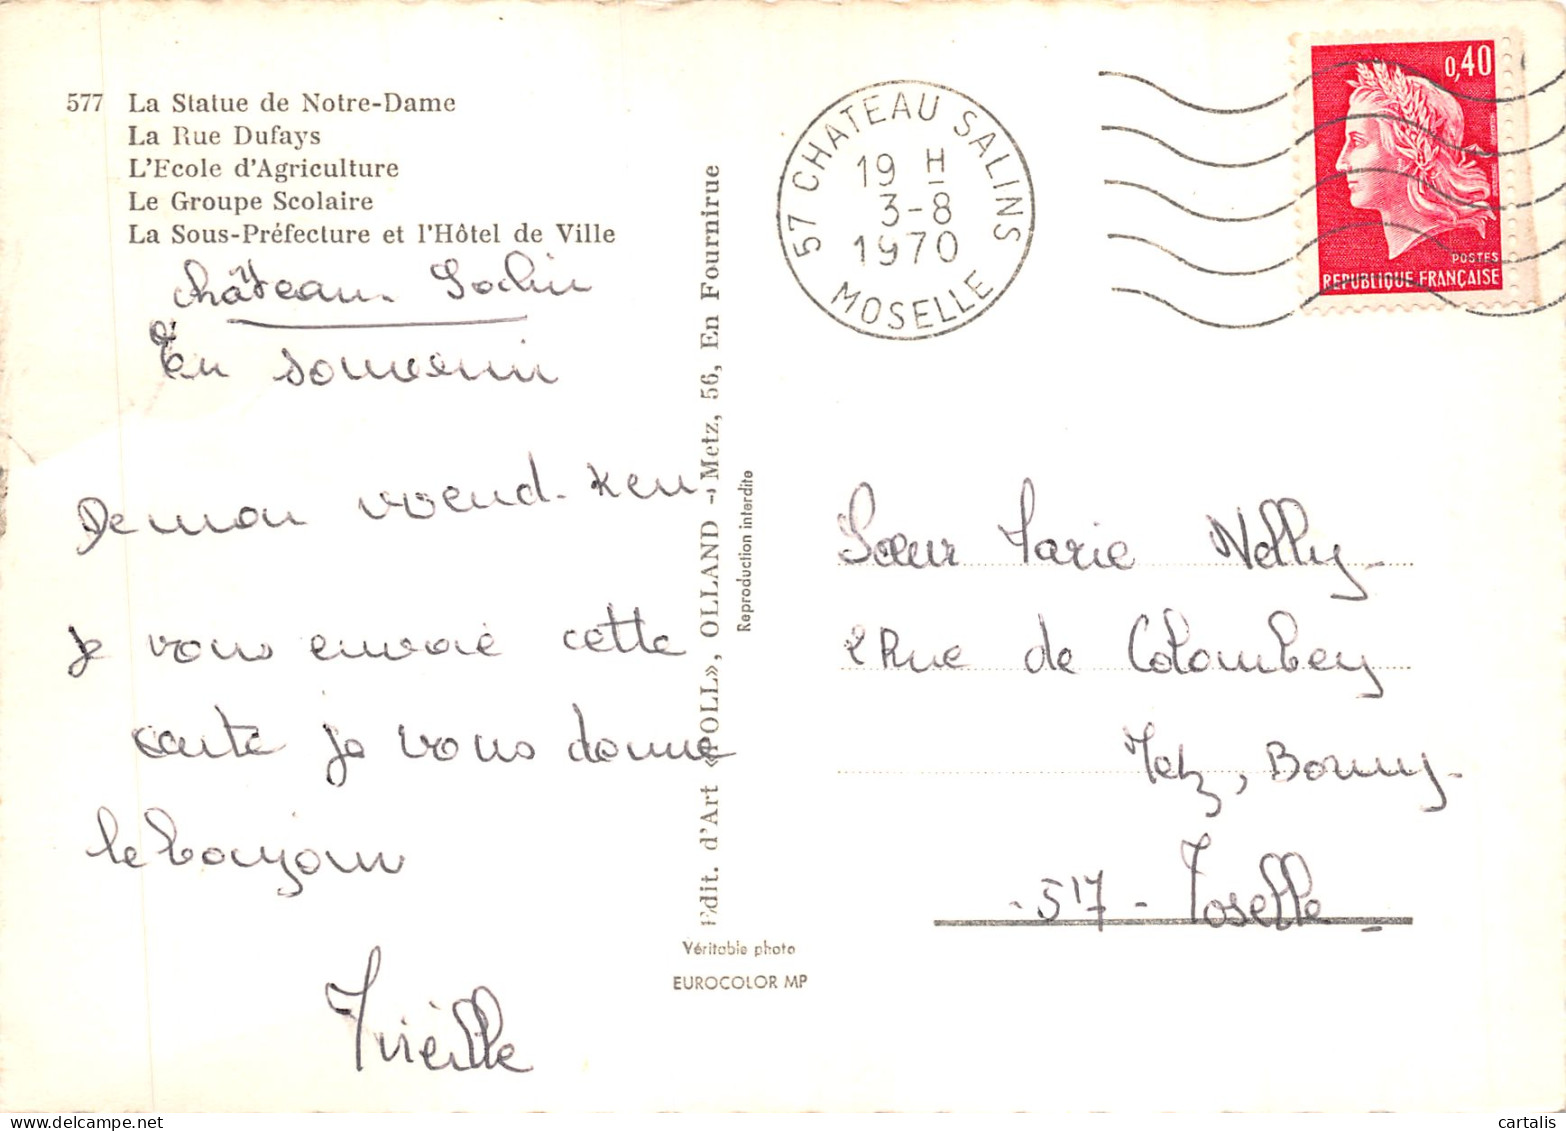 577 La Statue de Notre-Dame
La Rue Dufays
L'Ecole d'Agriculture
Le Groupe Scolaire
La Sous-Préfecture et l'Hôtel de Ville
château Salin
En souvenir
De mon voend-ken
je vous envoie cette
carte je vous donne
le bonjour
Mireille
Edit. d'Art «POLL», OLLAND - Metz, 56, En Fournirue
Reproduction interdite
Véritable photo
EUROCOLOR MP
57 CHATEAU SALINS
19 H
3-8
1970
MOSELLE
0,40
POSTES
REPUBLIQUE FRANÇAISE
Sœur Marie Nelly
2 Rue de Colombey
Metz, Borny
- 57 - Moselle
cartalis